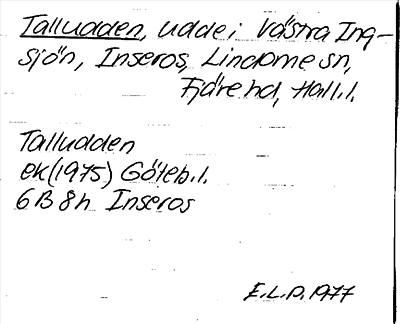 Talludden, udde i Västra Ing-
sjön, Inseros, Lindome sn,
Fjäre hd, Hall.l.
Talludden
ek (1975) Göteb.l.
6 B 8h Inseros
E.L.P. 1977